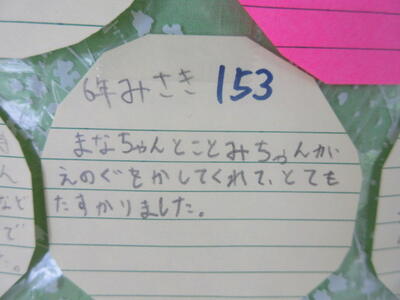 6年みさき 153
まなちゃんとことみちゃんが
えのぐをかしてくれて、とても
たすかりました。